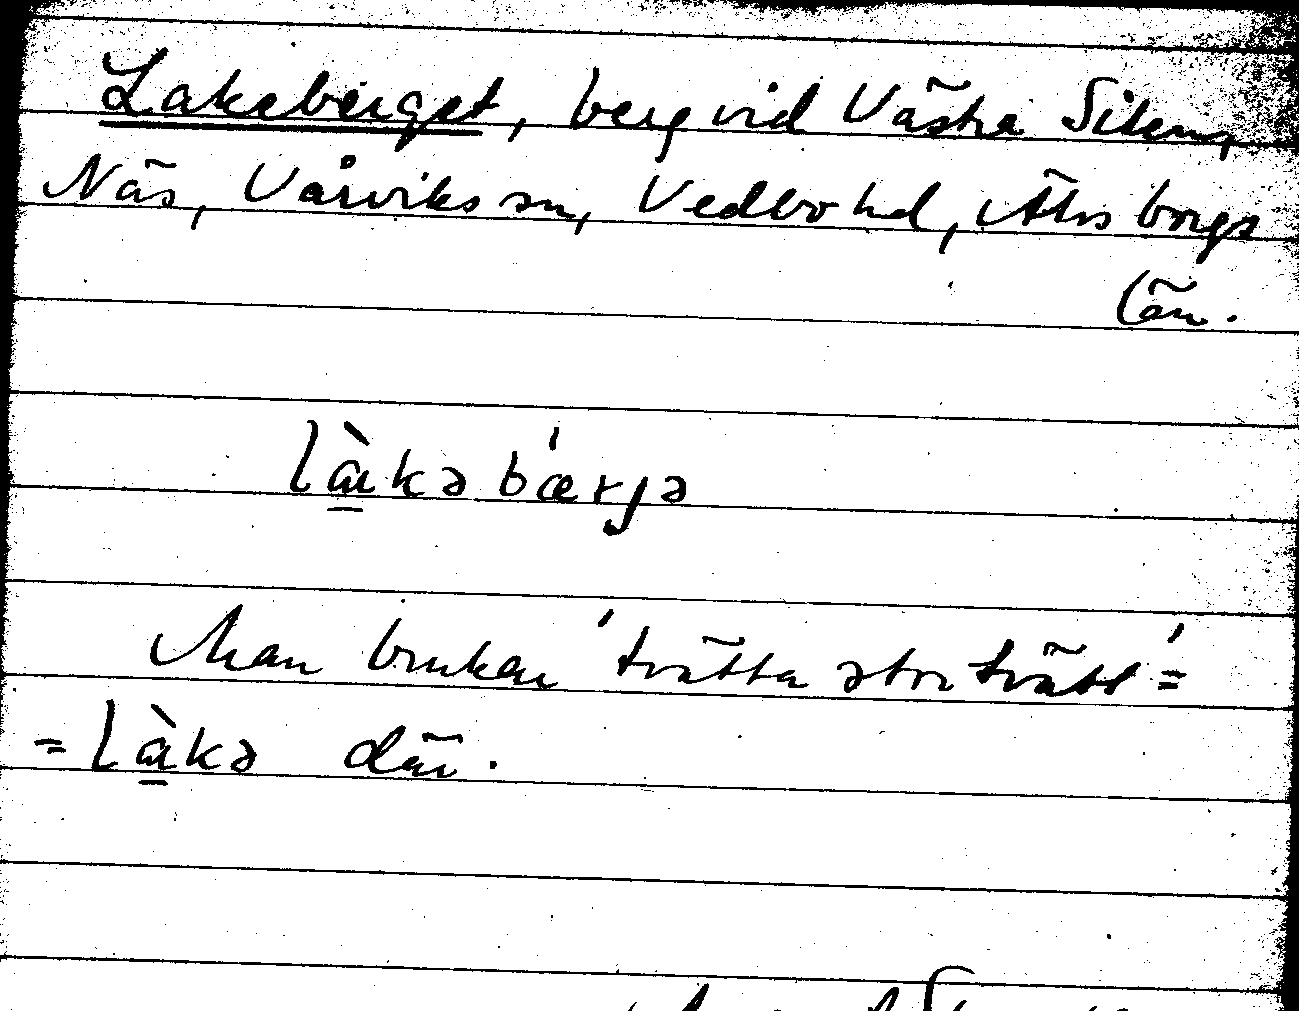 Lakeberget, berg vid Västra Silen,
Näs, Vårviks sn, Vedbo hd, Älvsborgs
län.
là̱kəbæ´rjə
Man brukar 'tvätta stortvätt' =
= là̱kə där.